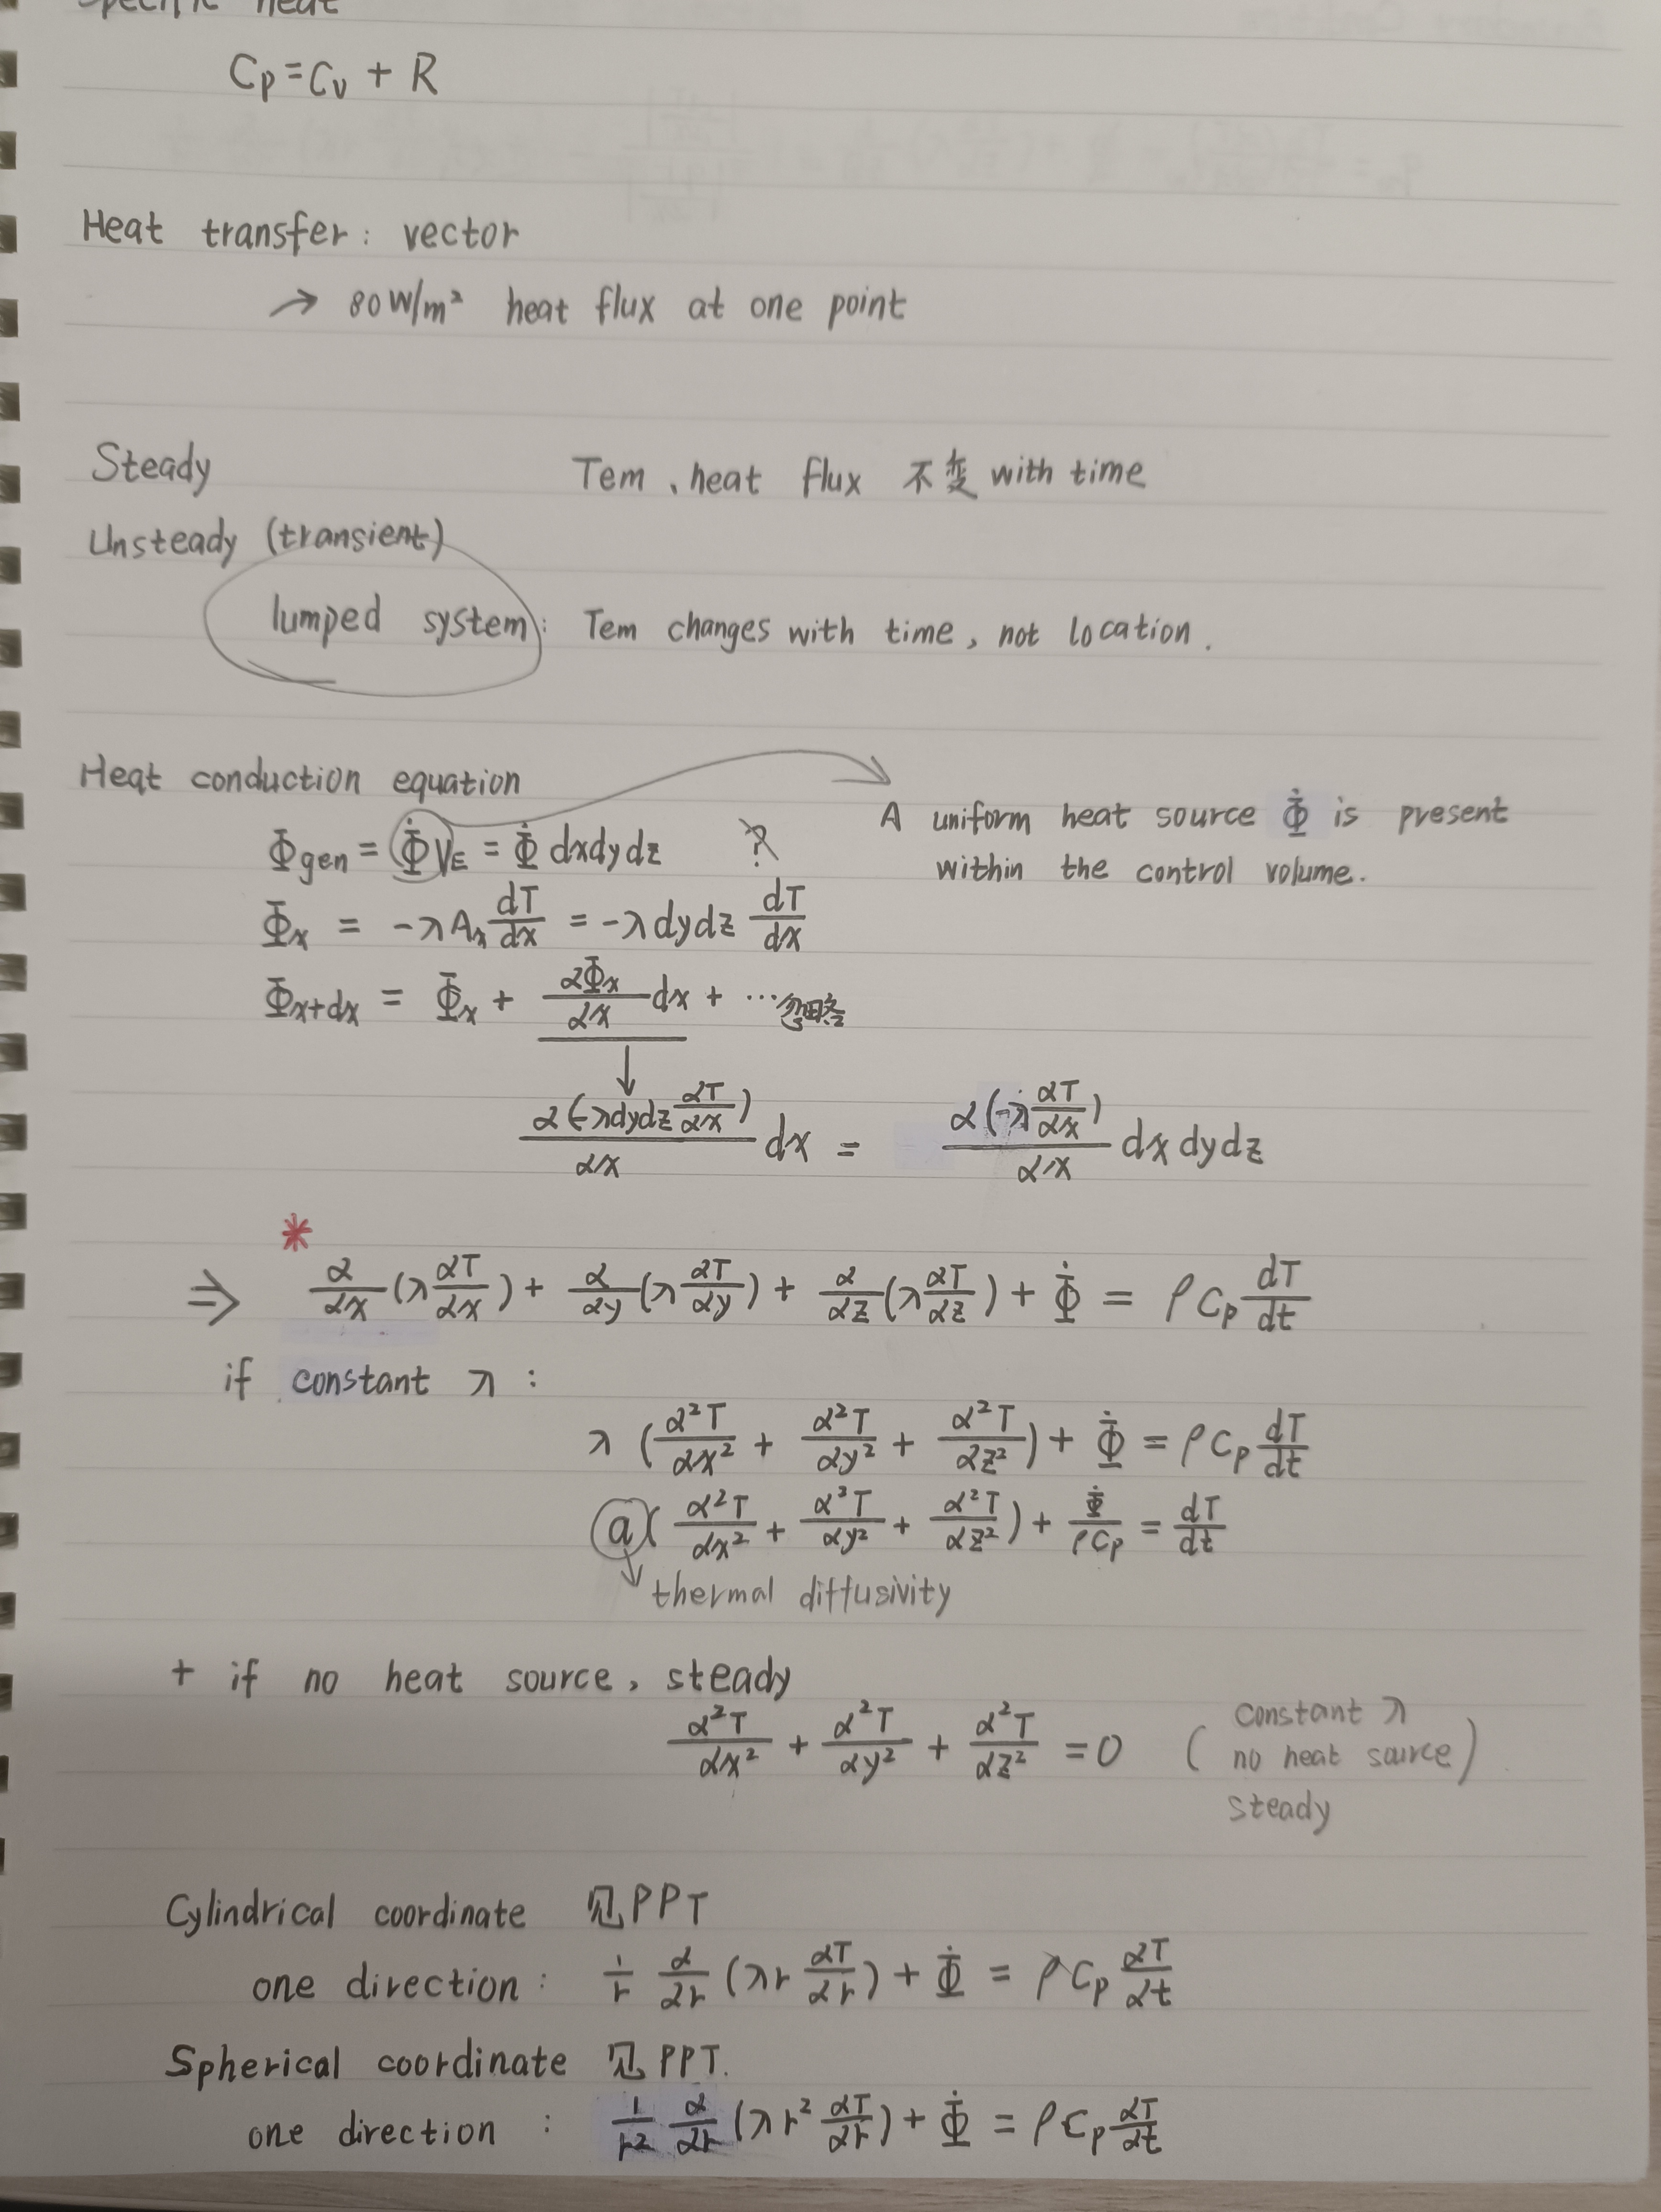 specific heat
Cp = Cv + R
Heat transfer: vector
→ 80 W/m² heat flux at one point
Steady Tem、heat flux 不变 with time
Unsteady (transient)
lumped system: Tem changes with time, not location.
Heat conduction equation
A uniform heat source Φ̇ is present
Φgen = Φ̇ VE = Φ̇ dxdydz ?
within the control volume.
Φx = -λAx dT/dx = -λ dydz dT/dx
Φx+dx = Φx + ∂Φx/∂x dx + ··· 忽略
↓
∂(-λdydz ∂T/∂x)/∂x dx = ∂(-λ ∂T/∂x)/∂x dx dydz
*
⇒ ∂/∂x (λ ∂T/∂x) + ∂/∂y (λ ∂T/∂y) + ∂/∂z (λ ∂T/∂z) + Φ̇ = ρ Cp dT/dt
if constant λ :
λ (∂²T/∂x² + ∂²T/∂y² + ∂²T/∂z²) + Φ̇ = ρ Cp dT/dt
a (∂²T/∂x² + ∂²T/∂y² + ∂²T/∂z²) + Φ̇/ρCp = dT/dt
↘ thermal diffusivity
+ if no heat source, steady
∂²T/∂x² + ∂²T/∂y² + ∂²T/∂z² = 0 (constant λ
no heat source)
steady
Cylindrical coordinate 见PPT
one direction: 1/r ∂/∂r (λr ∂T/∂r) + Φ̇ = ρ Cp ∂T/∂t
Spherical coordinate 见PPT.
one direction : 1/r² ∂/∂r (λ r² ∂T/∂r) + Φ̇ = ρ Cp ∂T/∂t